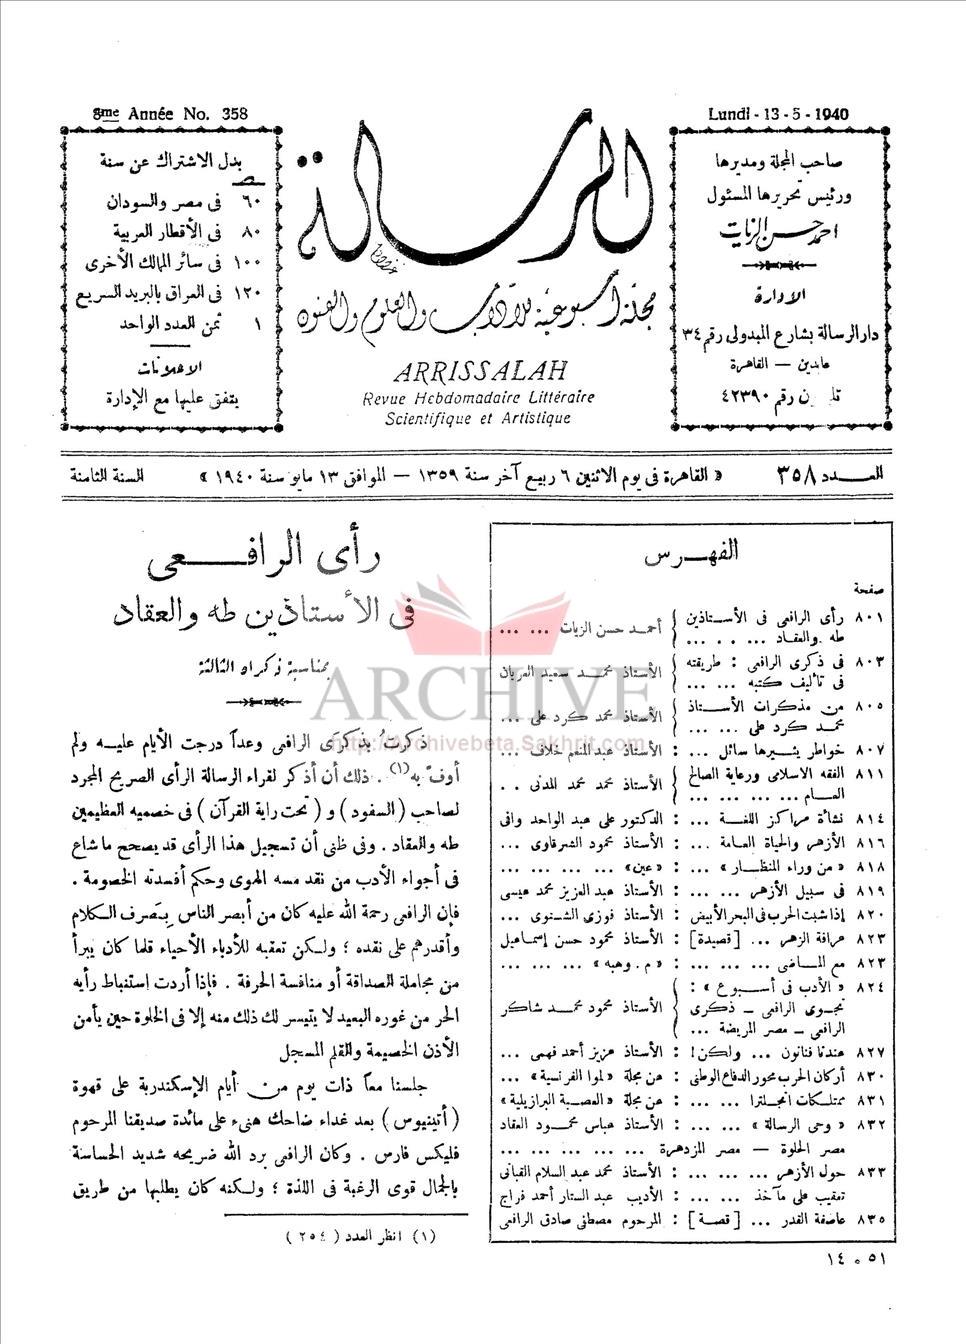 8me Année No. 358
Lundi - 13 - 5 - 1940
صاحب المجلة ومديرها
ورئيس تحريرها المسئول
احمد حسن الزيات
الإدارة
دار الرسالة بشارع المبدولى رقم ٣٤
عابدين — القاهرة
رقم ٤٢٣٩٠
الرسالة
مجلة أسبوعية للآداب والعلوم والفنون
ARRISSALAH
Revue Hebdomadaire Littéraire
Scientifique et Artistique
بدل الاشتراك عن سنة
٦٠ فى مصر والسودان
٨٠ فى الأقطار العربية
١٠٠ فى سائر الممالك الأخرى
١٢٠ فى العراق بالبريد السريع
١ ثمن العدد الواحد
الاعلانات
يتفق عليها مع الإدارة
العــدد ٣٥٨
« القاهرة فى يوم الاثنين ٦ ربيع آخر سنة ١٣٥٩ — الموافق ١٣ مايو سنة ١٩٤٠ »
السنة الثامنة
الفهـرس
صفحة
٨٠١ رأى الرافعى فى الأستاذين طه والعقاد ... : أحمد حسن الزيات ... ...
٨٠٣ فى ذكرى الرافعى : طريقته فى تأليف كتبه ... ... : الأستاذ محمد سعيد العريان
٨٠٥ من مذكرات الأستاذ محمد كرد على ... ... : الأستاذ محمد كرد على ...
٨٠٧ خواطر يثيرها سائل ... : الأستاذ عبد المنعم خلاف ...
٨١١ الفقه الاسلامى ورعاية الصالح العام ... ... ... : الأستاذ محمد محمد المدنى . .
٨١٤ نشأة مراكز اللغة ... : الدكتور على عبد الواحد وافى
٨١٦ الأزهر والحياة العامة ... : الأستاذ محمود الشرقاوى ...
٨١٨ « من وراء المنظار » ... : «عين» ... ... ...
٨١٩ فى سبيل الأزهر ... ... : الأستاذ عبد العزيز محمد عيسى
٨٢٠ إذا شبت الحرب فى البحر الأبيض : الأستاذ فوزى الشنوى ...
٨٢٣ عرافة الزهر ... [قصيدة] : الأستاذ محمود حسن إسماعيل
٨٢٣ مع الماضى ... ... ... : « م . وهبه » ... ...
٨٢٤ « الأدب فى أسبوع » : نجوى الرافعى – ذكرى الرافعى – مصر المريضة ... : الأستاذ محمود محمد شاكر
٨٢٧ عندنا فنانون ... ولكن! : الأستاذ عزيز أحمد فهمى ...
٨٣٠ أركان الحرب محور الدفاع الوطنى : عن مجلة «لموا الفرنسية» ...
٨٣١ ممتلكات انجلترا ... ... : عن مجلة «العصبة البرازيلية»
٨٣٢ « وحى الرسالة » ... ... : الأستاذ عباس محمود العقاد
مصر الحلوة – مصر المزدهرة ... ... ... ...
٨٣٣ حول الأزهر ... ... ... : الأستاذ محمد عبد السلام القبانى
تعقيب على مآخذ ... ... : الأديب عبد الستار أحمد فراج
٨٣٥ عاصفة القدر ... [قصة] : المرحوم مصطفى صادق الرافعى
١٤ ٥ ٥١
رأى الرافـــعى
فى الأستاذين طه والعقاد
بمناسبة ذكراه الثالثة
ذكرتُ بذكرى الرافعى وعداً درجت الأيام عليه ولم
أوفّ به(١) . ذلك أن أذكر لقراء الرسالة الرأى الصريح المجرد
لصاحب ( السفود ) و ( تحت راية القرآن ) فى خصميه العظيمين
طه والعقاد . وفى ظنى أن تسجيل هذا الرأى قد يصحح ما شاع
فى أجواء الأدب من نقد مسه الهوى وحكم أفسدته الخصومة .
فإن الرافعى رحمة الله عليه كان من أبصر الناس بتَصرف الكلام
وأقدرهم على نقده ؛ ولكن تعقبه للأدباء الأحياء قلما كان يبرأ
من مجاملة الصداقة أو منافسة الحرفة . فإذا أردت استنباط رأيه
الحر من غوره البعيد لا يتيسر لك ذلك منه إلا فى الخلوة حين يأمن
الأذن الخصيمة والقلم المسجل
جلسنا معاً ذات يوم من أيام الإسكندرية على قهوة
( أتينيوس ) بعد غداء ضاحك هنىء على مائدة صديقنا المرحوم
فليكس فارس . وكان الرافعى برد الله ضريحه شديد الحساسة
بالجمال قوى الرغبة فى اللذة ؛ ولكنه كان يطلبها من طريق
(١) انظر العدد ( ٢٥٤ )
ARCHIVE
http://Archivebeta.Sakhrit.com